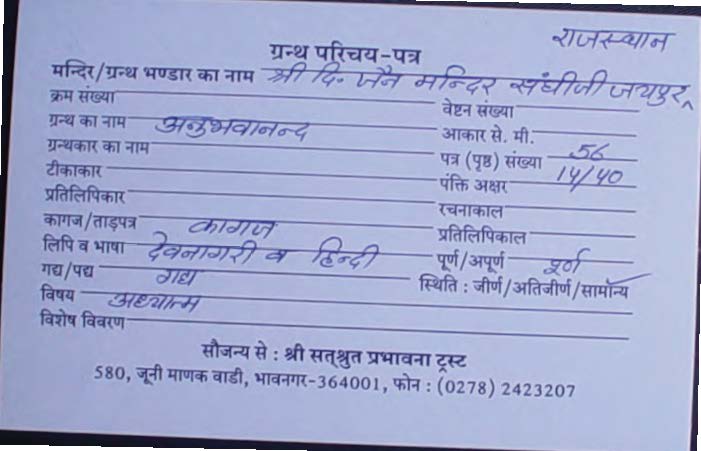 राजस्थान
ग्रन्थ परिचय-पत्र
मन्दिर/ग्रन्थ भण्डार का नाम श्री दि. जैन मन्दिर संघीजी जयपुर
क्रम संख्या वेष्टन संख्या
ग्रन्थ का नाम अनुभवानन्द आकार से. मी.
ग्रन्थकार का नाम पत्र (पृष्ठ) संख्या 56
टीकाकार पंक्ति अक्षर 14/40
प्रतिलिपिकार रचनाकाल
कागज/ताड़पत्र कागज प्रतिलिपिकाल
लिपि व भाषा देवनागरी व हिन्दी पूर्ण/अपूर्ण पूर्ण
गद्य/पद्य गद्य स्थिति : जीर्ण/अतिजीर्ण/सामान्य
विषय अध्यात्म
विशेष विवरण
सौजन्य से : श्री सत्श्रुत प्रभावना ट्रस्ट
580, जूनी माणक वाडी, भावनगर-364001, फोन : (0278) 2423207